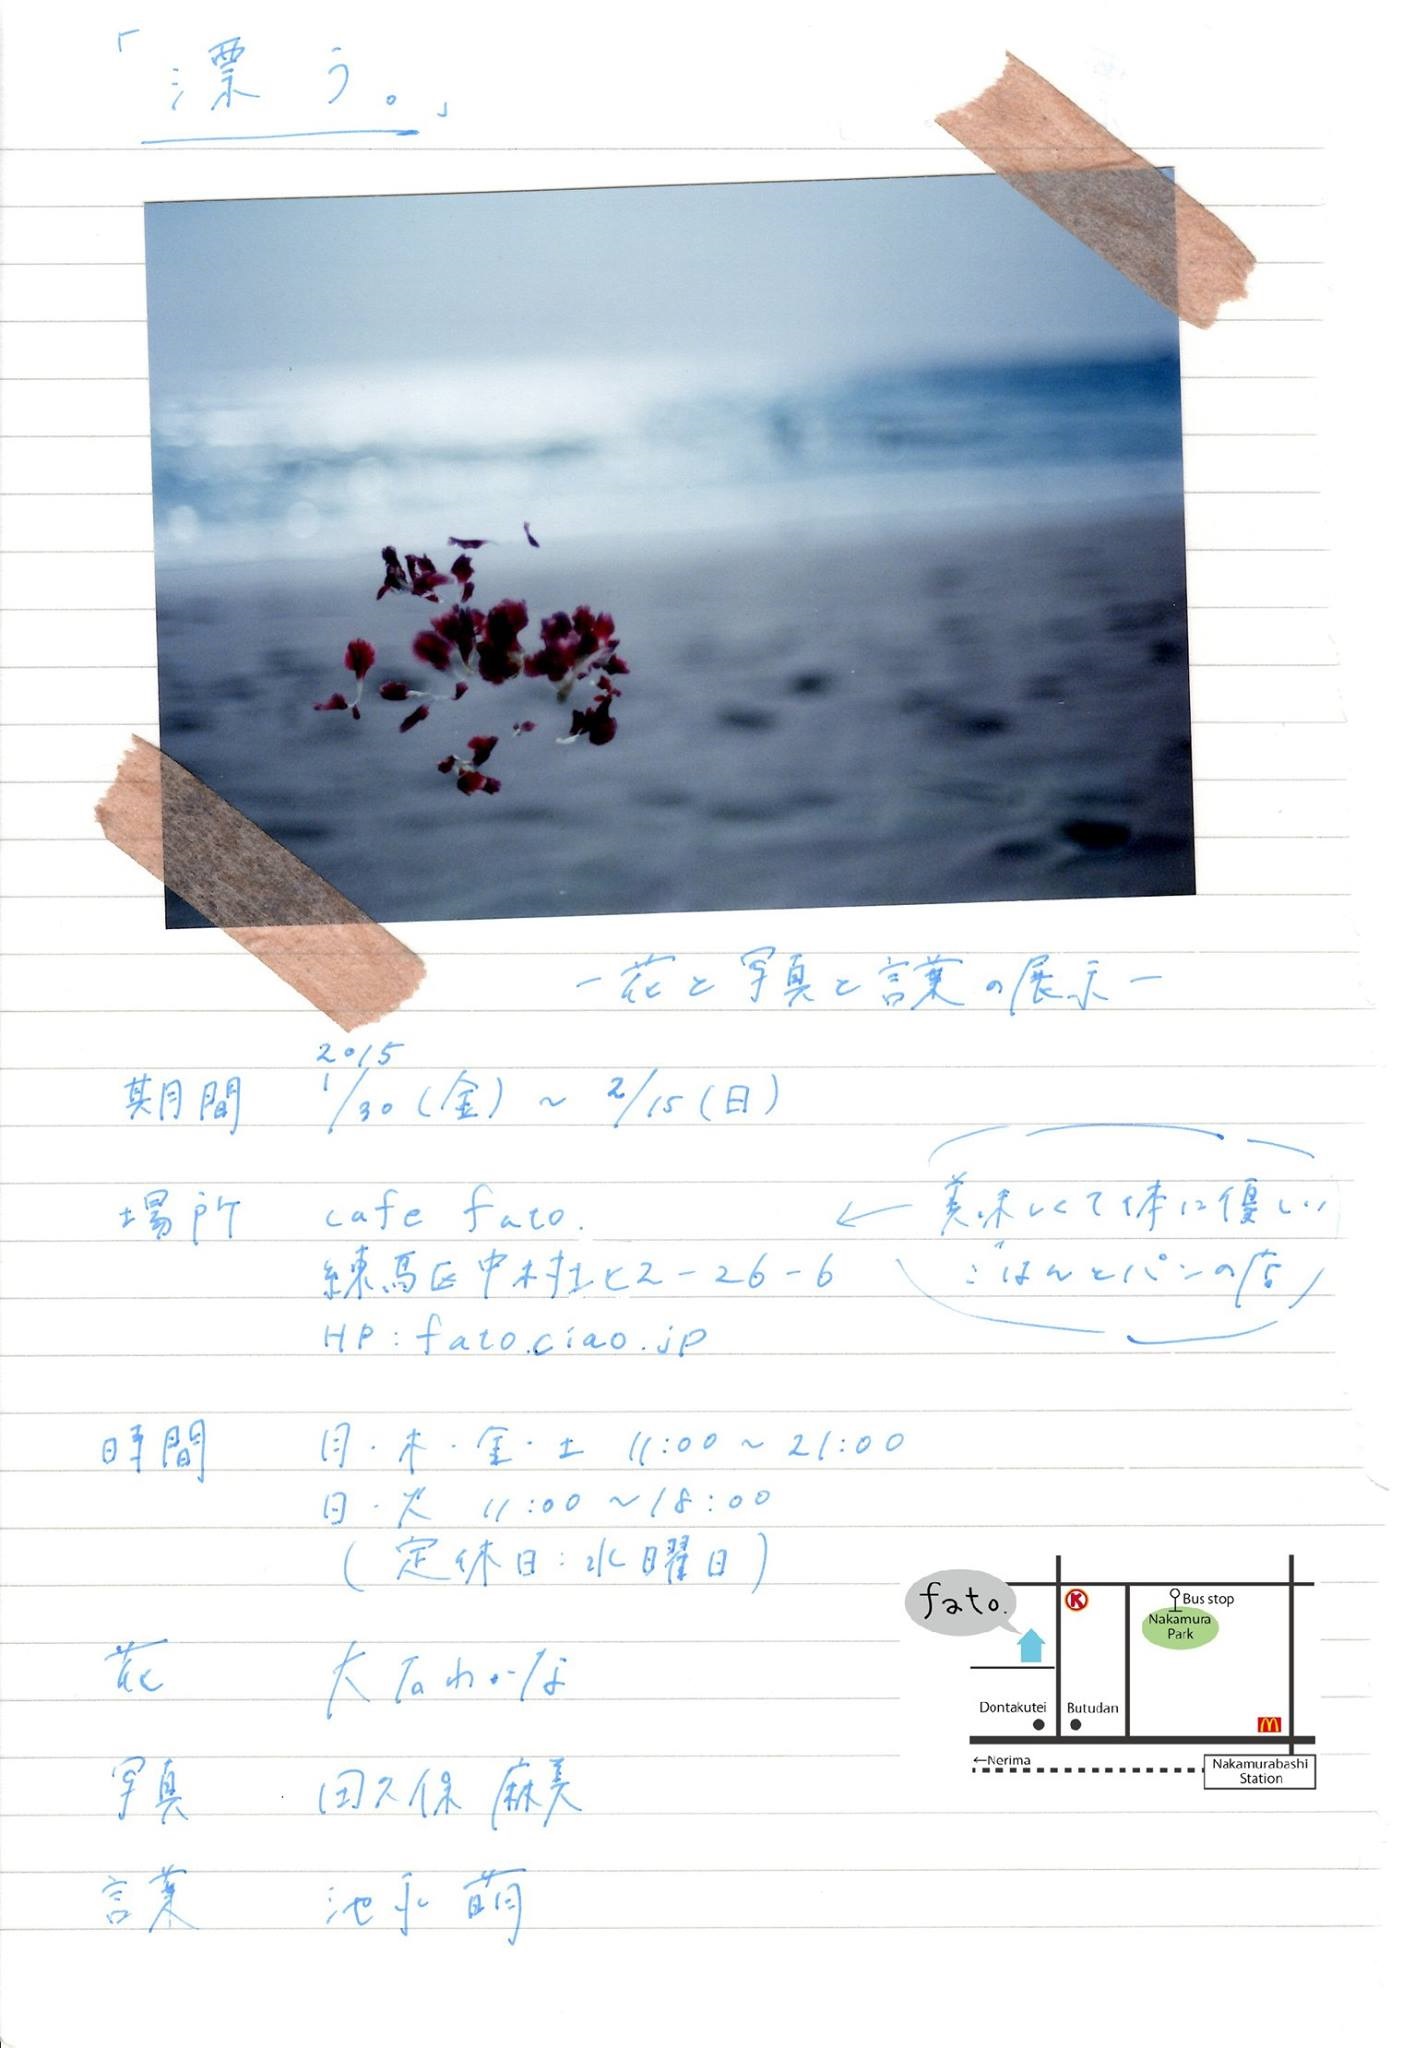 「漂う。」
－花と写真と言葉の展示－
期間 2015 1/30(金)～2/15(日)
場所 cafe fato.
練馬区中村北2-26-6
HP:fato.ciao.jp
←美味しくて体に優しい
ごはんとパンの店
時間 月・木・金・土 11:00～21:00
日・火 11:00～18:00
(定休日:水曜日)
花
写真 田久保 麻美
言葉 池永 萌
fato.
K
Bus stop
Nakamura
Park
Dontakutei
Butudan
M
←Nerima
Nakamurabashi
Station